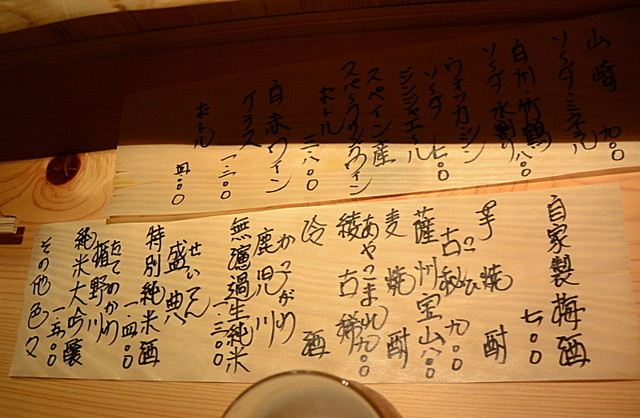 山崎 九〇〇
ソーダ・ミネラル
白州・竹鶴 八〇〇
ソーダ 水割り
ウォッカ・ジン
ソーダ 七〇〇
ジンジャエール
スペイン産
スパークリングワイン
ボトル 三八〇〇
白赤ワイン
グラス 一、二〇〇
ボトル
自家製梅酒
七〇〇
芋焼酎
古秘 九〇〇
薩州宝山 八〇〇
麦焼酎
あやこまれ
綾古稀 九〇〇
冷酒
かっこがわ
鹿児川
無濾過生純米
一、三〇〇
せいてん
盛典
特別純米酒
一、四〇〇
たてのかわ
楯野川
純米大吟醸
一、五〇〇
その他色々